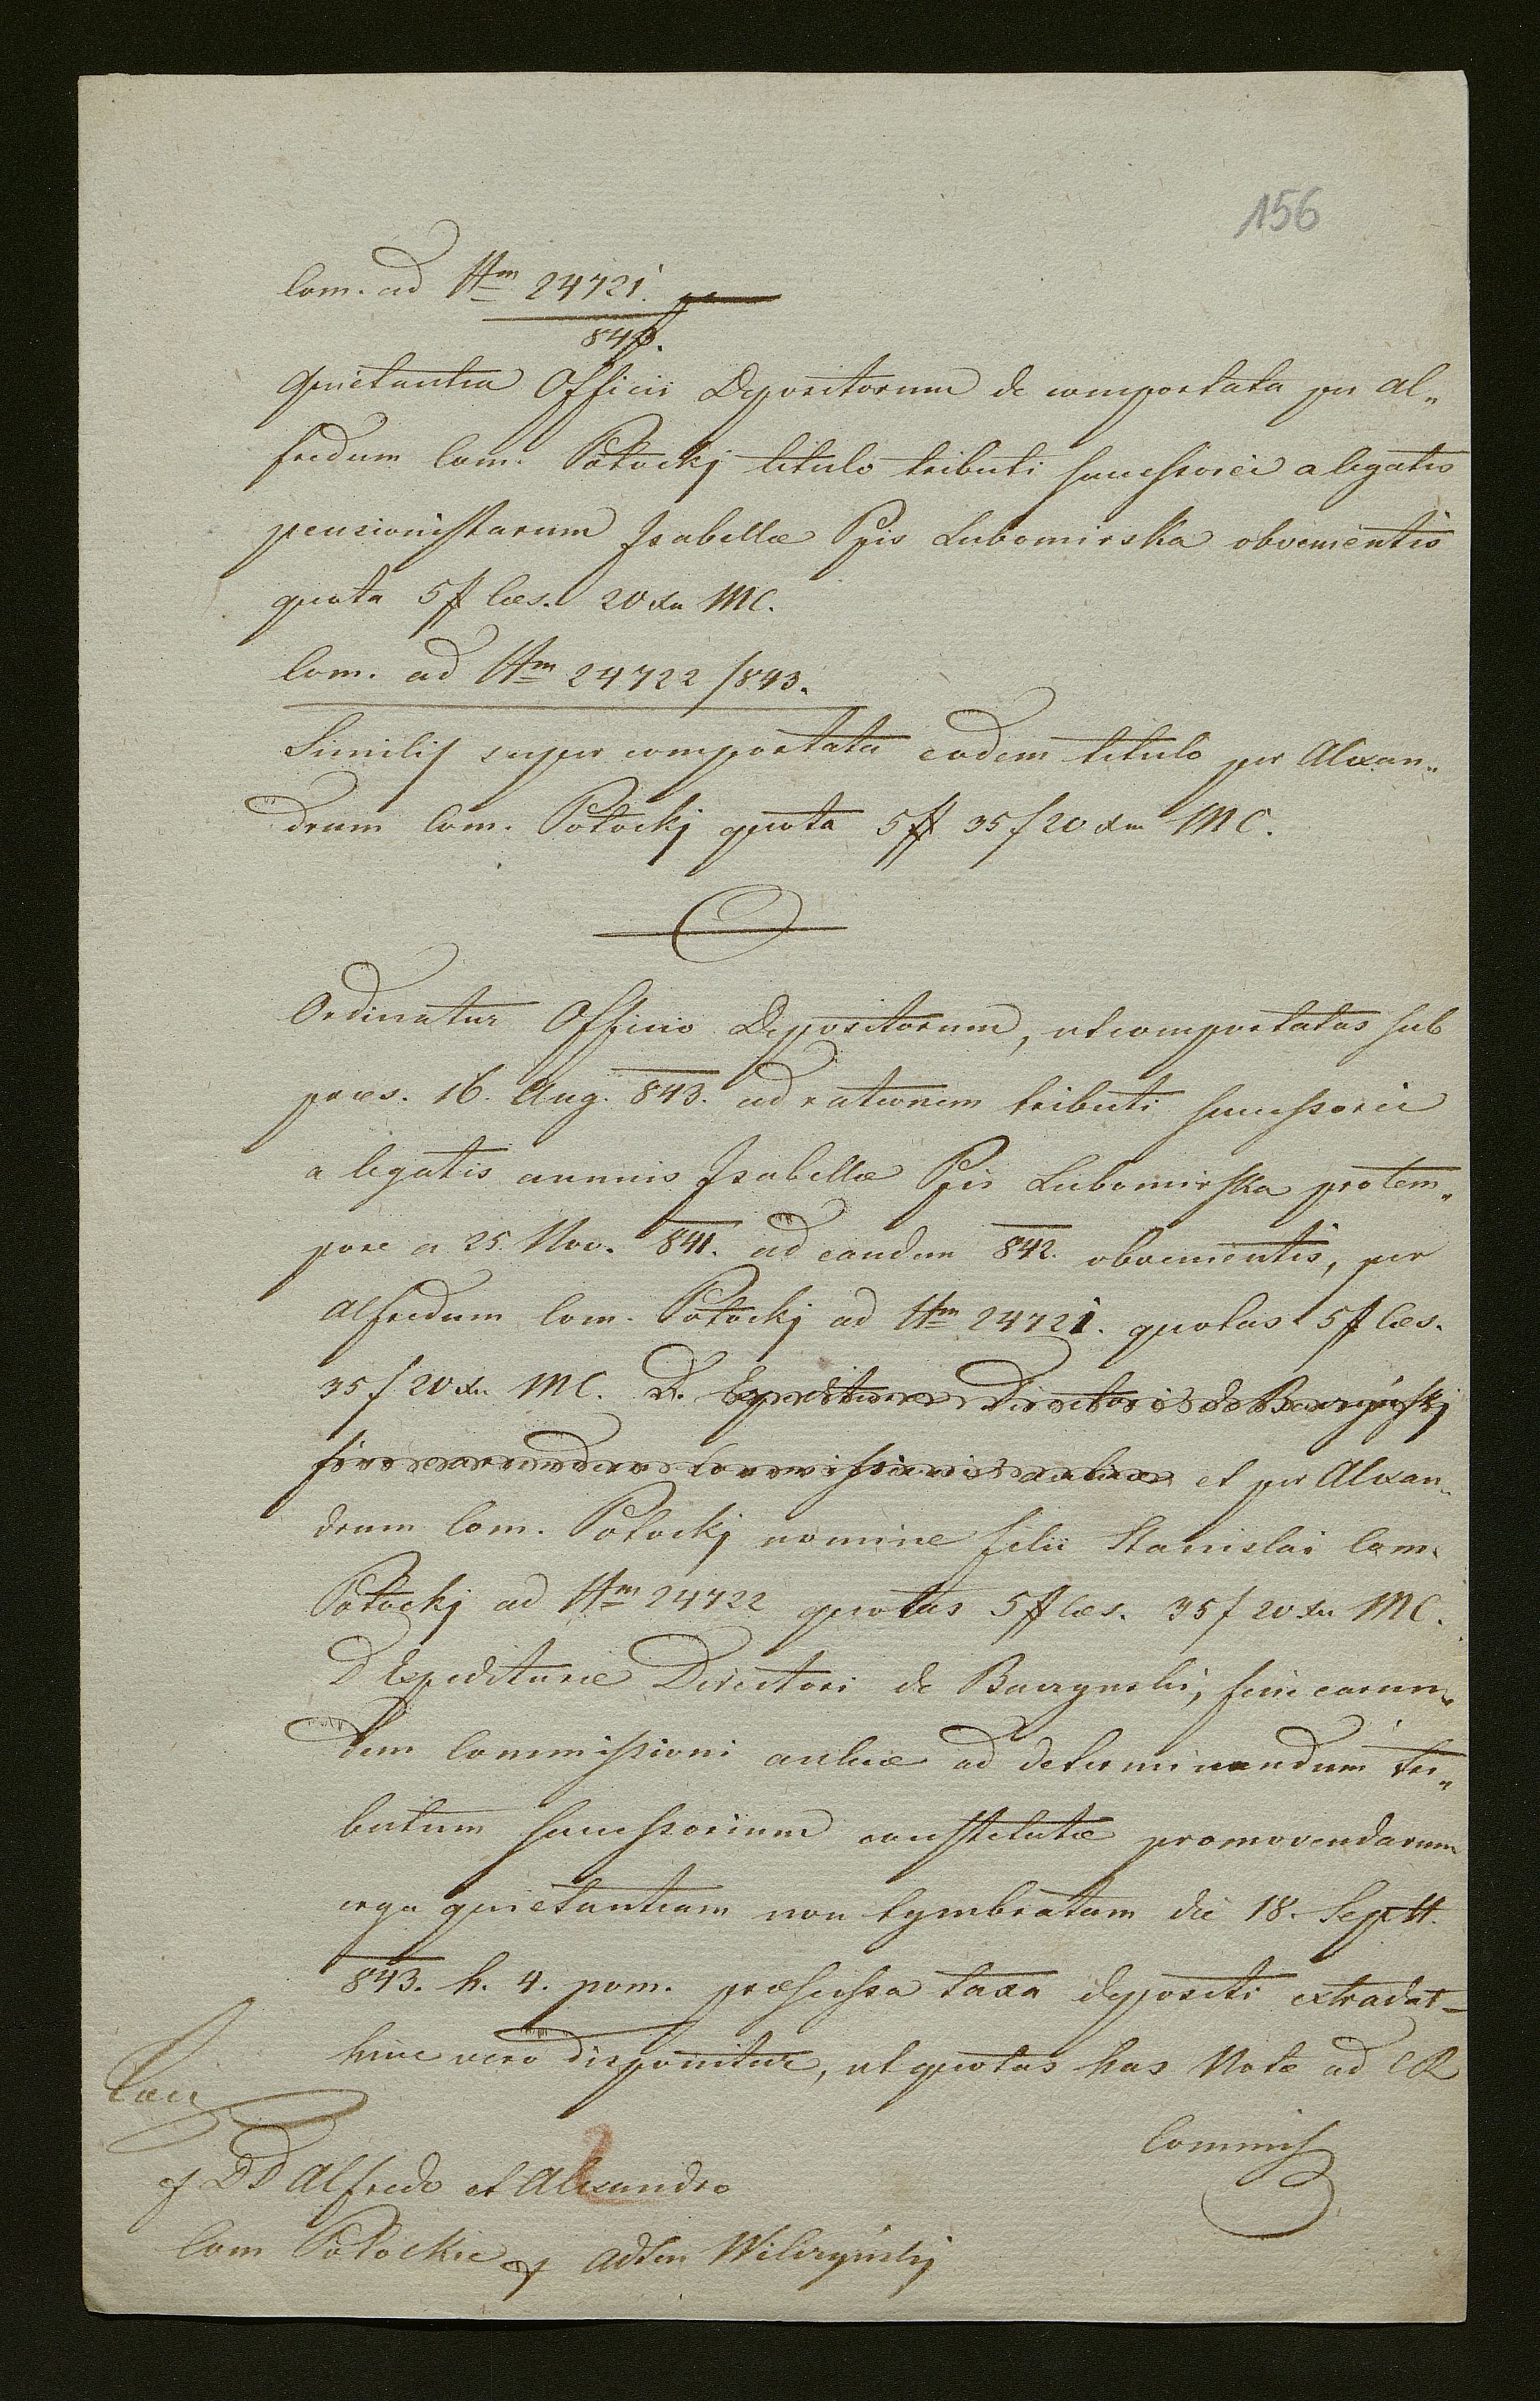 156
Com. ad Nm 24721.
843.
Quietantia Officii Depositorum de comportata per Al„
fredum Com. Potockj titulo tributi successorii a legatis
pensionistarum Isabellæ Ppis Lubomirska obvenientis
quota 5 # Cæs. 20 xr MC.
Com. ad Nm 24722/843.
Similis super comportata eodem titulo per Alexan„
drum Com. Potockj quota 5 ## 35 f 20 xr MC.
Ordinatur Officio Depositorum, ut comportatas sub
præs. 16. Aug. 843. ad rationem tributi successorii
a legatis annuis Isabellæ Ppis Lubomirska pro tem„
pore a 25. Nov. 841. ad eandem 842. obvenientis, per
Alfredum Com. Potockj ad Nm 24721. quotas 5 # Cæs.
35 f 20 xr MC. D. Expediturae Directori de
fine earundem Commissioni aulicæ et per Alexan„
drum Com. Potockj nomine filii Stanislai Com.
Potockj ad Nm 24722 quotas 5 ## Cæs. 35 f 20 xr MC.
D Expediturae Directori de Buczynski, fine earun„
dem Commissioni aulicæ ad determinandum tri„
butum successorium constitutæ promovendarum
erga quietantiam non tymbratam die 18. Sept.
843. h. 4. pom. præscissa taxa depositi extradat–
hinc vero disponitur, ut quotas has Notæ ad CR
Commis
DD Alfredo et Alexandro
Com Potockie Adten Wilczyńskj